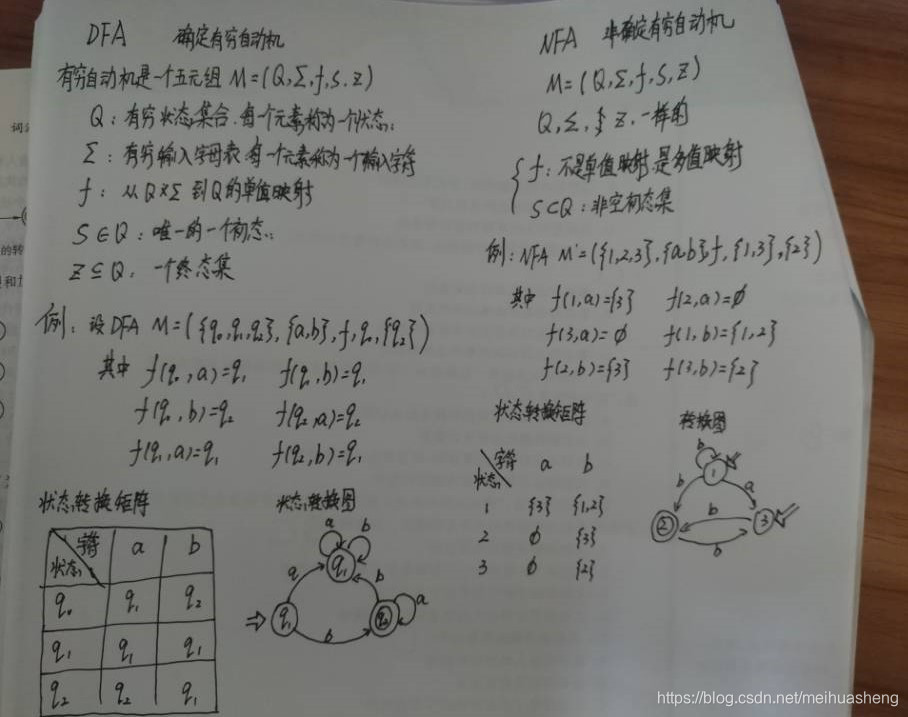 DFA 确定有穷自动机
有穷自动机是一个五元组 M=(Q,Σ,f,S,Z)
Q:有穷状态集合.每一个元素称为一个状态.
Σ:有穷输入字母表.每一个元素称为一个输入字符
f:从Q×Σ到Q的单值映射
S∈Q:唯一的一个初态.
Z⊆Q:一个终态集
例:设DFA M=({q₀,q₁,q₂},{a,b},f,q₀,{q₂})
其中 f(q₀,a)=q₁ f(q₁,b)=q₁
f(q₀,b)=q₂ f(q₂,a)=q₂
f(q₁,a)=q₁ f(q₂,b)=q₁
状态转换矩阵
字符 a b
状态
q₀ q₁ q₂
q₁ q₁ q₁
q₂ q₂ q₁
状态转换图
a b
q₁
a b
⇒ q₁ q₂ a
b
NFA 非确定有穷自动机
M=(Q,Σ,f,S,Z)
Q,Σ, Z,一样的
f:不是单值映射是多值映射
S⊂Q:非空初态集
例:NFA M'=({1,2,3},{a,b},f,{1,3},{2})
其中 f(1,a)={3} f(2,a)=∅
f(3,a)=∅ f(1,b)={1,2}
f(2,b)={3} f(3,b)={2}
状态转换矩阵
字符 a b
状态
1 {3} {1,2}
2 ∅ {3}
3 ∅ {2}
转换图
b
1
b a
2 b 3
b
词法
的转
https://blog.csdn.net/meihuasheng